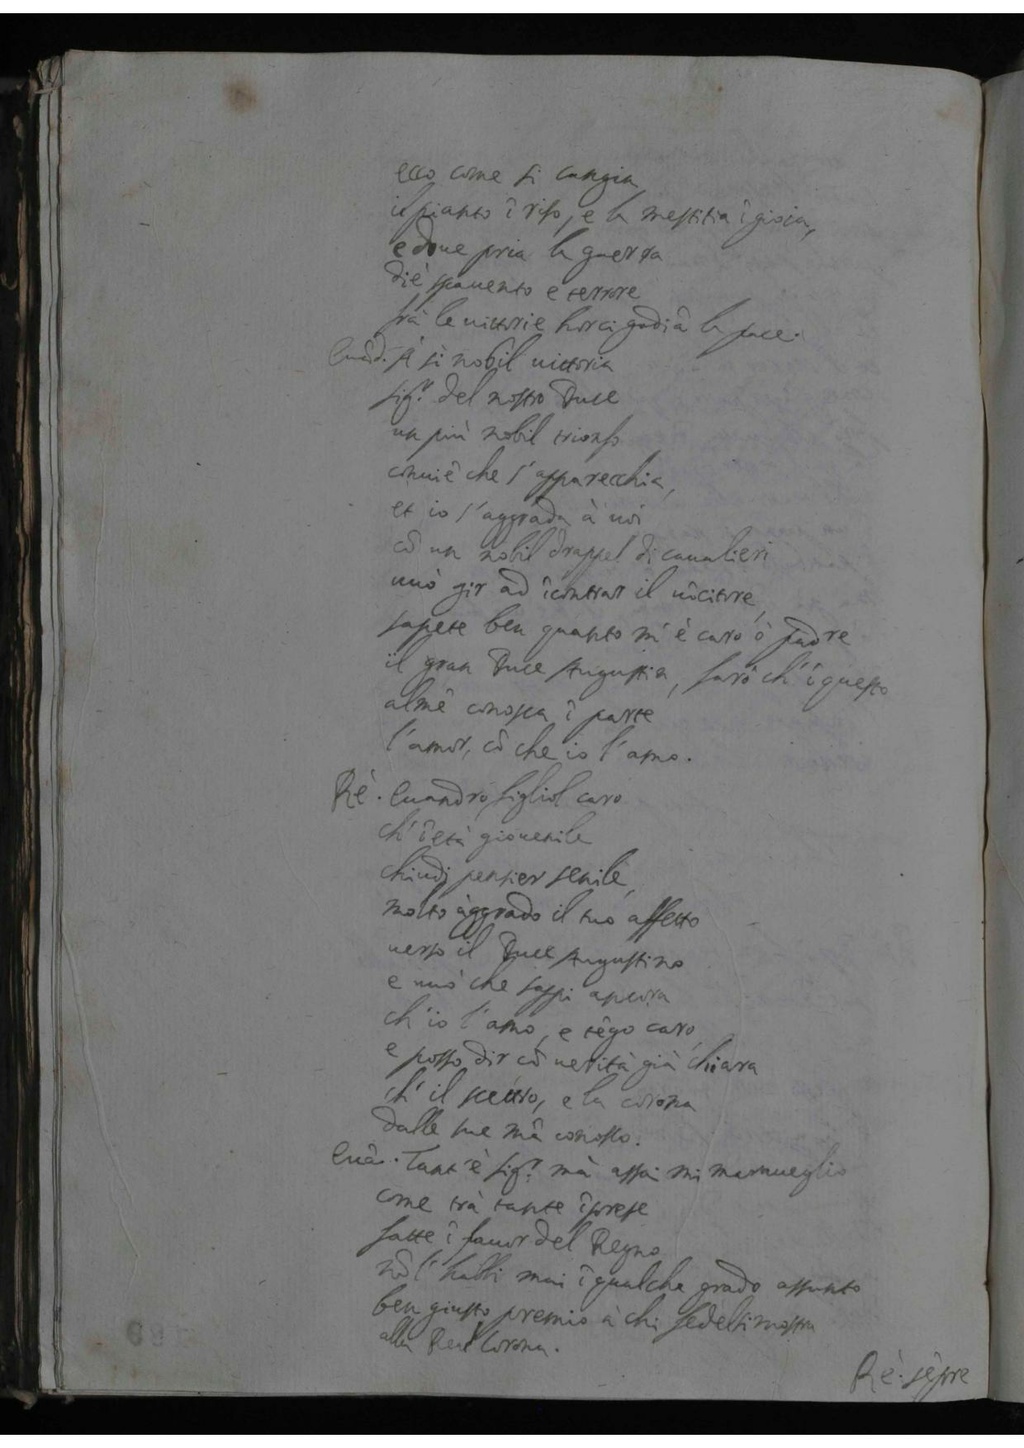 ecco come si cangia
il pianto ĩ riso, e la mestitia ĩ gioia,
e doue pria la guerra
diè spauento e terrore
frà le uittorie hor ci godiã la pace.
Euãd. A sì nobil uittoria
sig.r del nostro Duce
un più nobil trionfo
conuiẽ che s'apparecchia,
et io s'aggrada à uoi
cõ un nobil drappel di caualieri
uuò gir ad ĩcontrar il uĩcitore,
sapete ben quanto m'è caro ò padre
il gran Duce Augustin, farò ch' ĩ questo
almẽ conosca ĩ parte
l'amor, cõ che io l'amo.
Rè. Euandro, figliol caro
ch' ĩ età giouenile
chiudi pensier senile,
molto aggrado il tuo affetto
uerso il Duce Augustino
e uuò che sappi ancora
ch'io l'amo, e tẽgo caro,
e posso dir cõ uerità già chiara
ch' il scettro, e la corona
dalle sue mã conosco.
Euã. Tant'è sig.r mà assai mi maraueglio
come trà tante ĩprese
fatte ĩ fauor del Regno
nõ l'habbi mai ĩ qualche grado assunto
ben giusto premio à chi fedel si mostra
alla Real Corona.
Rè. sẽpre